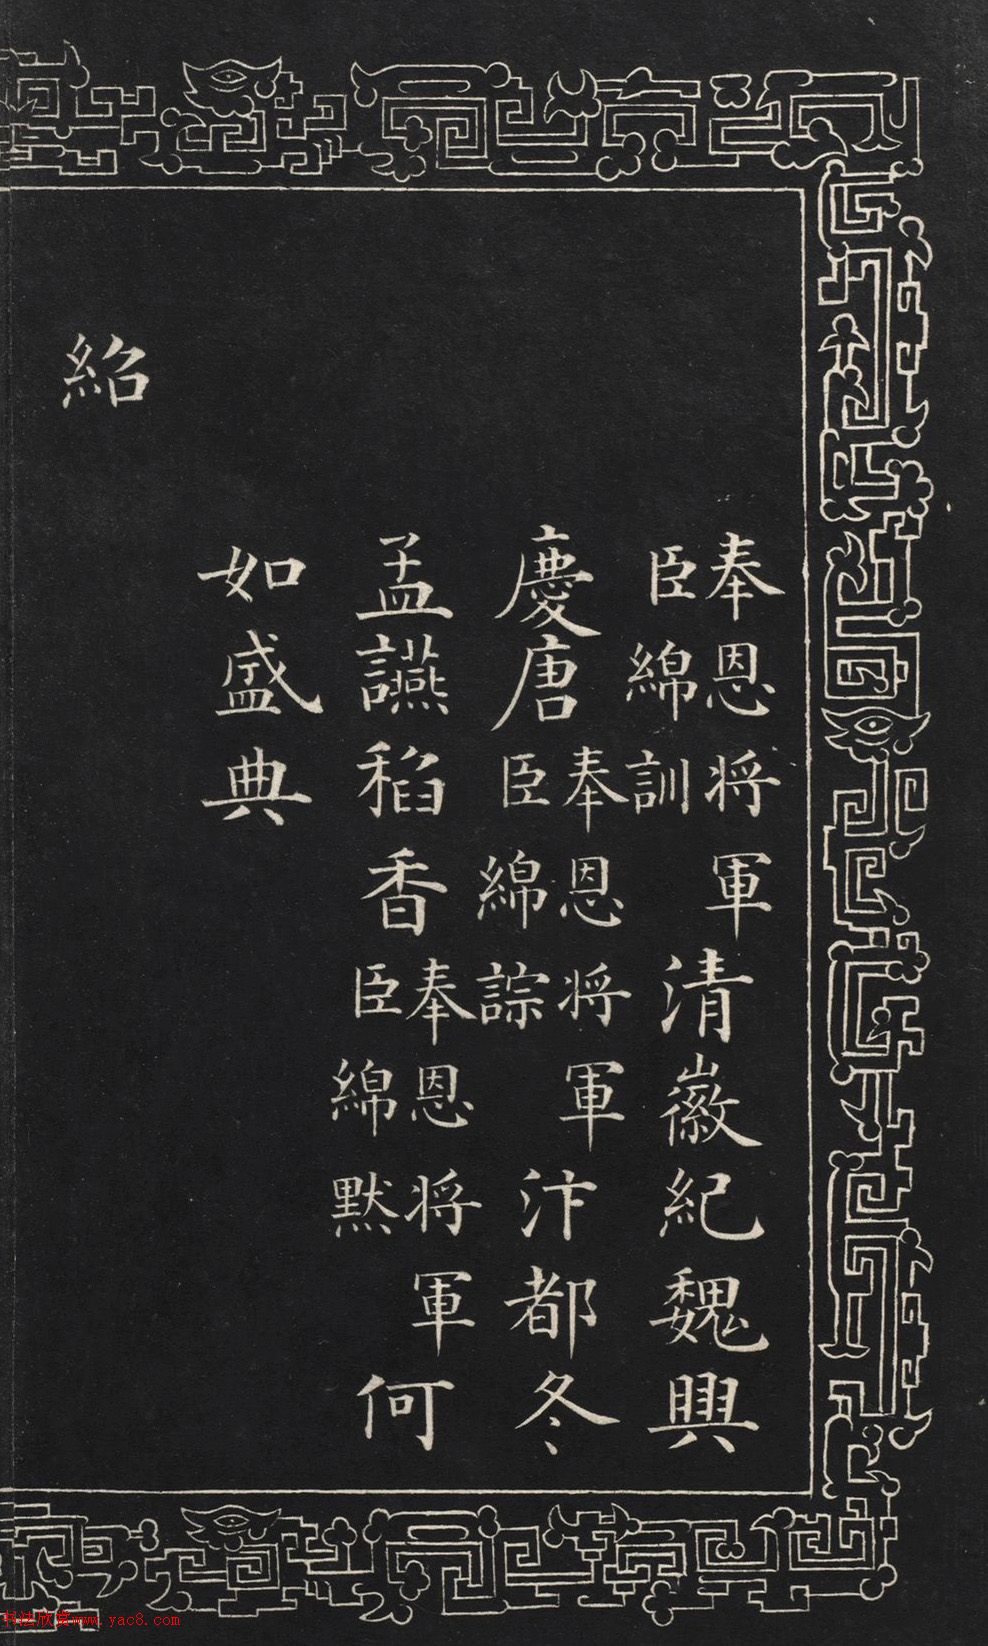 奉恩将軍
臣綿訓
清徽紀魏興
慶唐
奉恩将軍
臣綿誴
汴都冬
孟讌稻香
奉恩将軍
臣綿默
何
如盛典
紹
书法欣赏www.yac8.com